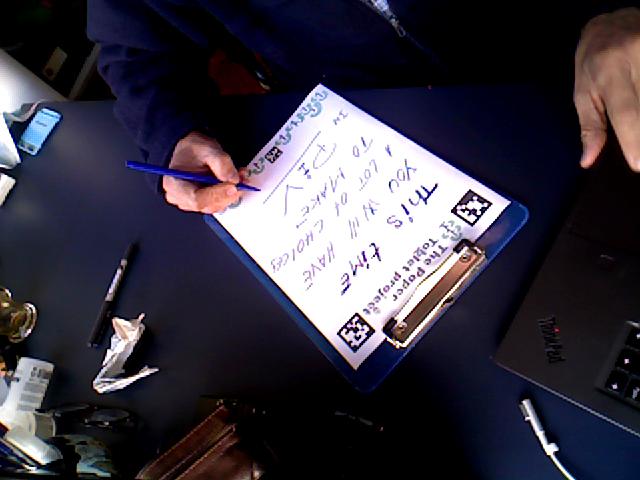 The Paper
Tablet project
This time
you will have
a lot of choices
to make
in
DIV
ThinkPad